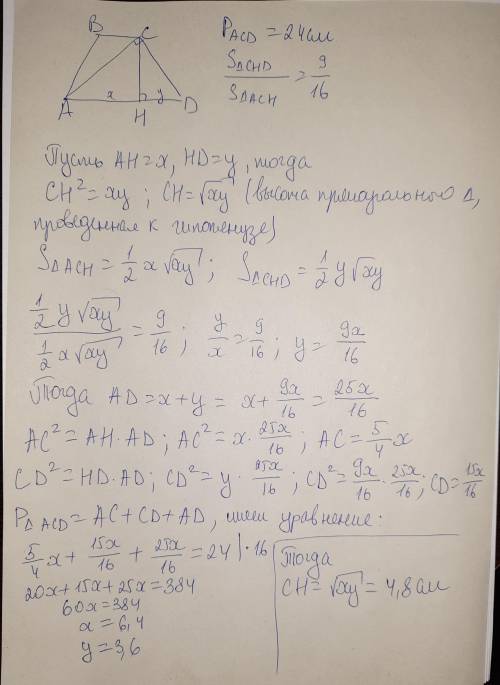 B C
A x H y D
P_ACD = 24см
S△CHD / S△ACH = 9/16
Пусть AH = x, HD = y, тогда
CH² = xy ; CH = √xy (высота прямоугольного △,
проведенная к гипотенузе)
S△ACH = 1/2 x √xy ; S△CHD = 1/2 y √xy
1/2 y √xy / 1/2 x √xy = 9/16 ; y/x = 9/16 ; y = 9x/16
Тогда AD = x + y = x + 9x/16 = 25x/16
AC² = AH · AD ; AC² = x · 25x/16 ; AC = 5/4 x
CD² = HD · AD ; CD² = y · 25x/16 ; CD² = 9x/16 · 25x/16 ; CD = 15x/16
P△ACD = AC + CD + AD, имеем уравнение:
5/4 x + 15x/16 + 25x/16 = 24 | · 16
20x + 15x + 25x = 384
60x = 384
x = 6,4
y = 3,6
Тогда
CH = √xy = 4,8см